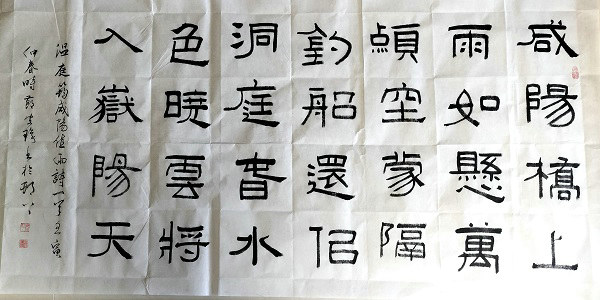 咸陽橋上
雨如懸萬
點空蒙隔
釣船還佀
洞庭旾水
色曉雲將
入嶽陽天
溫庭筠咸陽值雨詩一首壬寅
仲春時節書於